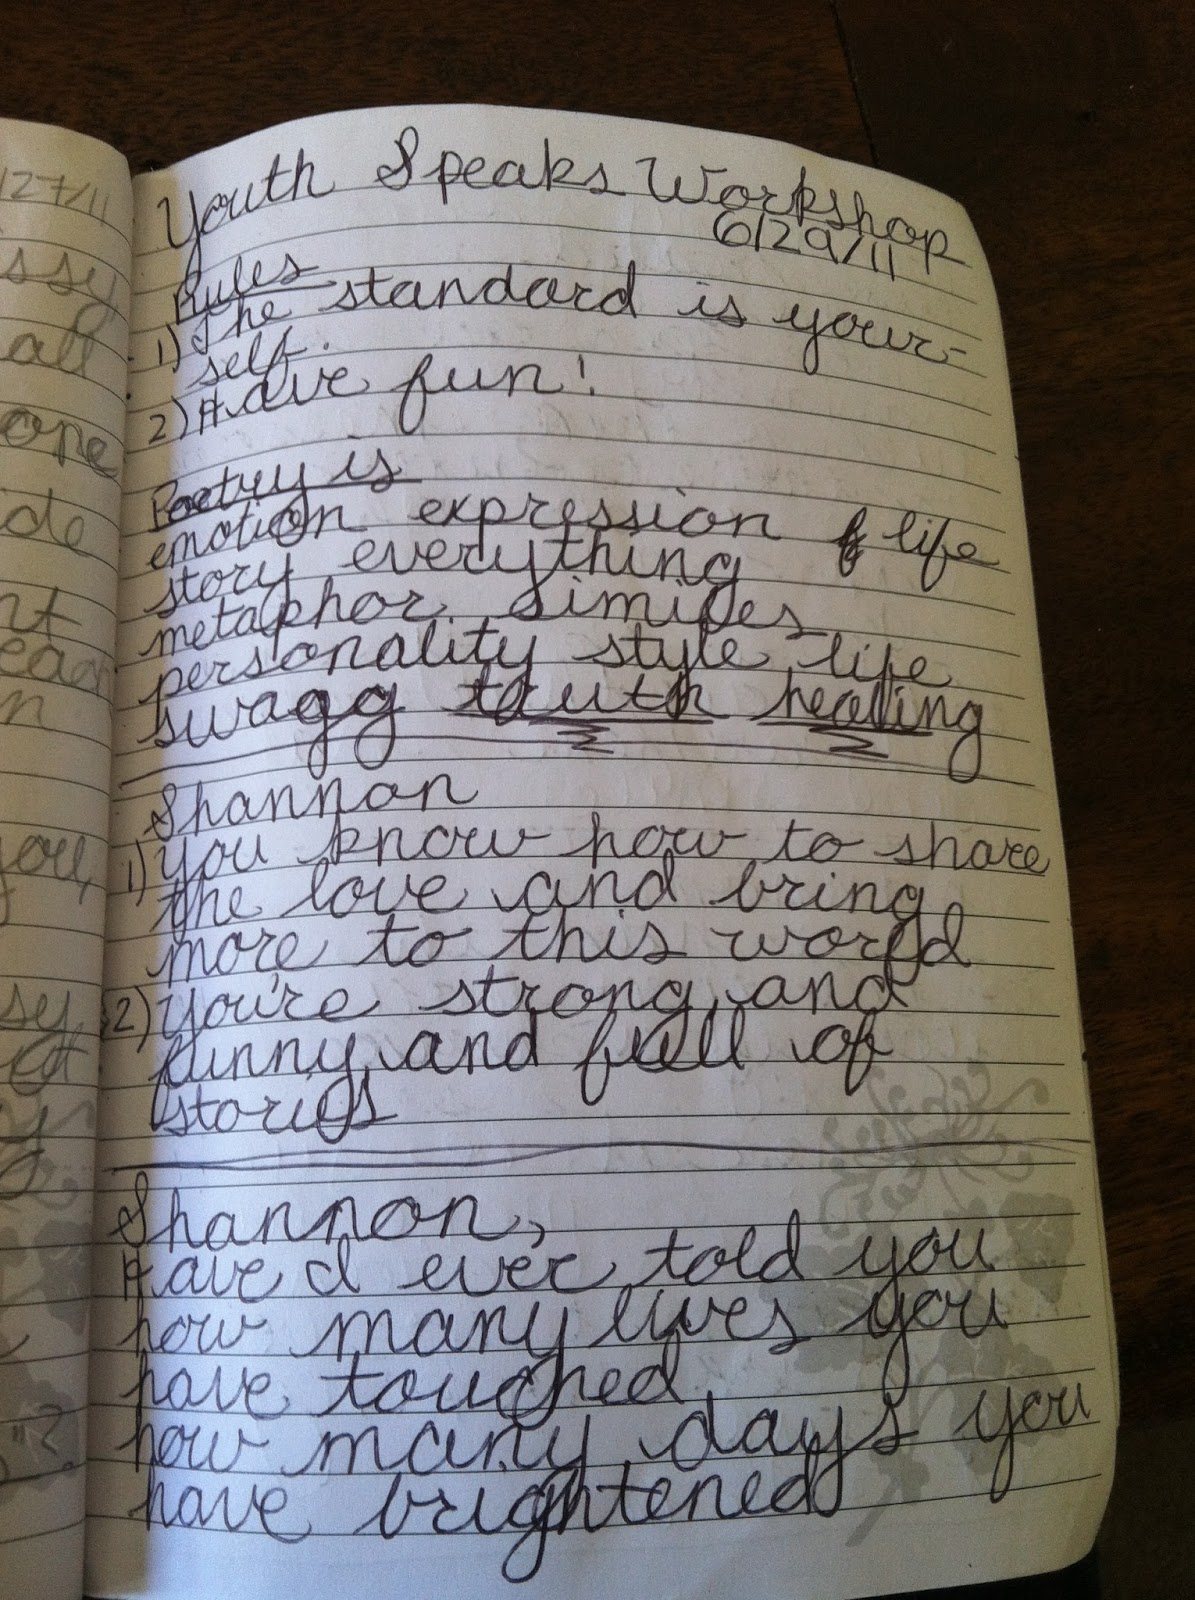 27/11
ssy
all
one
ide
nt
n
you,
sy
Youth Speaks Workshop
6/29/11
Rules
1) The standard is your-
self.
2) Have fun!
Poetry is
emotion expression life
story everything
metaphor similes
personality style life
swagg truth healing
Shannon
1) You know how to share
the love and bring
more to this world
2) You're strong and
funny and full of
stories
Shannon,
Have I ever told you
how many lives you
have touched
how many days you
have brightened